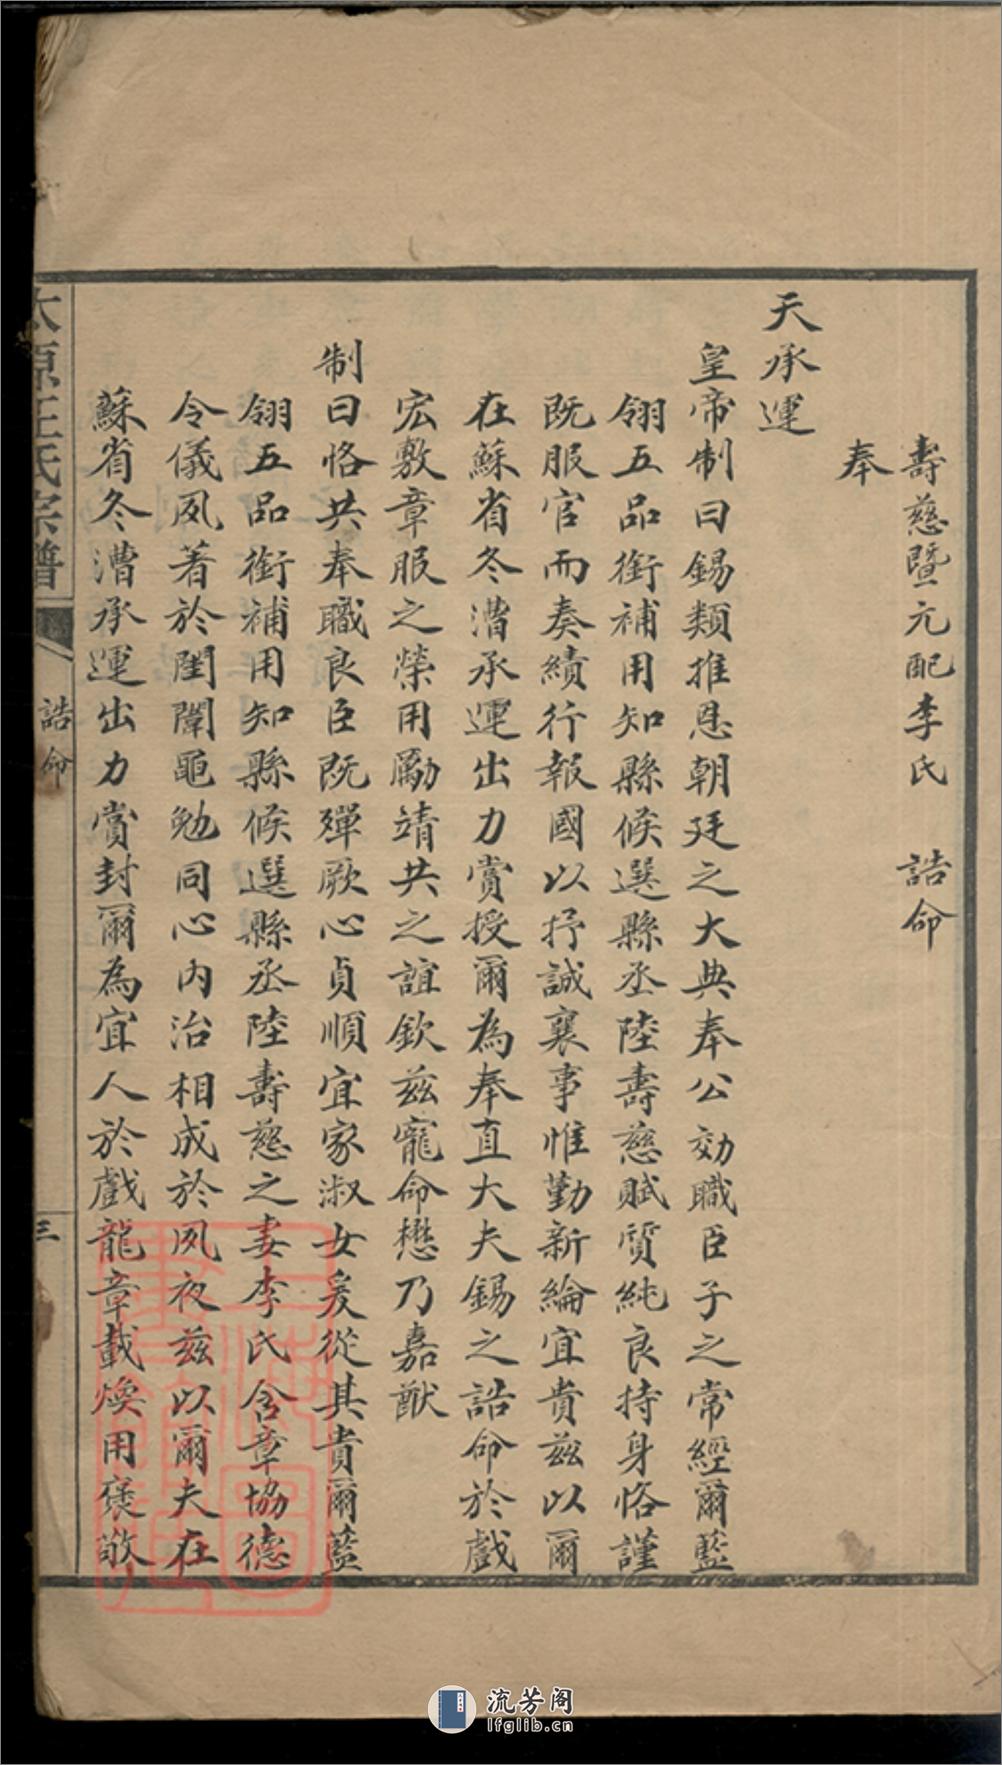 壽慈暨元配李氏 誥命
奉
天承運
皇帝制曰錫類推恩朝廷之大典奉公効職臣子之常經爾藍
翎五品銜補用知縣候選縣丞陸壽慈賦質純良持身恪謹
既服官而奏績行報國以抒誠襄事惟勤新綸宜貴茲以爾
在蘇省冬漕承運出力賞授爾為奉直大夫錫之誥命於戲
宏敷章服之榮用勵靖共之誼欽茲寵命懋乃嘉猷
制曰恪共奉職良臣既殫厥心貞順宜家淑女爰從其貴爾藍
翎五品銜補用知縣候選縣丞陸壽慈之妻李氏含章協德
令儀夙著於閨闈黽勉同心內治相成於夙夜茲以爾夫在
蘇省冬漕承運出力賞封爾為宜人於戲龍章載煥用褒敬
太原王氏宗譜
誥命
三
流芳阁
lfglib.cn